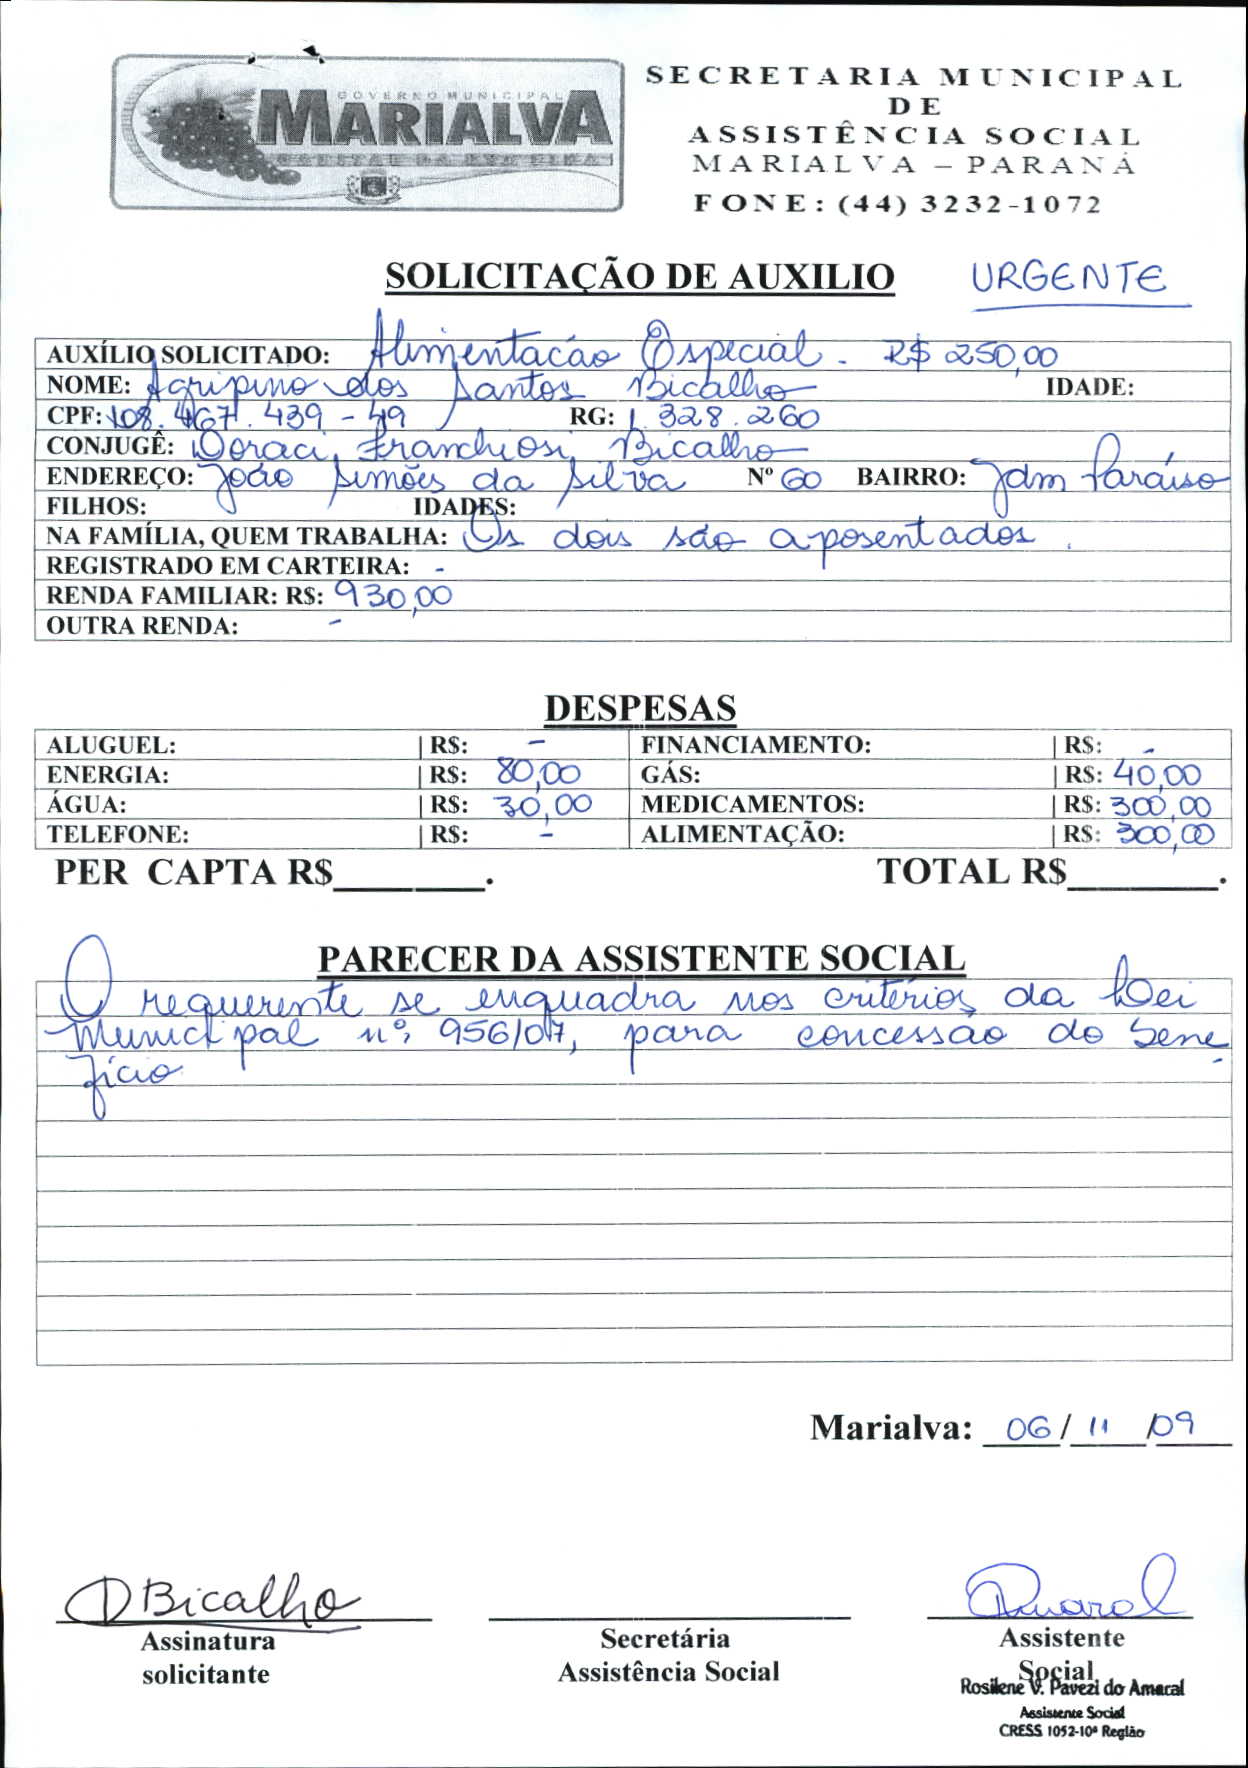 GOVERNO MUNICIPAL
MARIALVA
CAPITAL DA UVA FINA
SECRETARIA MUNICIPAL
DE
ASSISTÊNCIA SOCIAL
MARIALVA – PARANÁ
FONE: (44) 3232-1072
SOLICITAÇÃO DE AUXILIO URGENTE
AUXÍLIO SOLICITADO: Alimentacão Especial - R$ 250,00
NOME: Agripino dos Santos Bicalho IDADE:
CPF: 108.467.439-49 RG: 1.328.260
CONJUGÊ: Doraci Franchiosi Bicalho
ENDEREÇO: João Simões da Silva Nº 60 BAIRRO: Jdm Paraíso
FILHOS: IDADES:
NA FAMÍLIA, QUEM TRABALHA: Os dois são aposentados.
REGISTRADO EM CARTEIRA: -
RENDA FAMILIAR: R$: 930,00
OUTRA RENDA: -
DESPESAS
ALUGUEL: | R$: - FINANCIAMENTO: | R$: -
ENERGIA: | R$: 80,00 GÁS: | R$: 40,00
ÁGUA: | R$: 30,00 MEDICAMENTOS: | R$: 300,00
TELEFONE: | R$: - ALIMENTAÇÃO: | R$: 300,00
PER CAPTA R$________. TOTAL R$________.
PARECER DA ASSISTENTE SOCIAL
O requerente se enquadra nos critérios da Lei
Municipal nº 956/07, para concessão do bene
fício
Marialva: 06/11/09
DBicalho
Assinatura Secretária Assistente
solicitante Assistência Social Social
Rosilene V. Pavezi do Amaral
Assistente Social
CRESS 1052-10ª Região